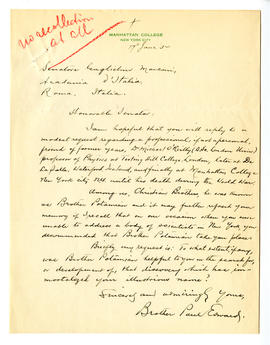 no recollection
at all
MANHATTAN COLLEGE
NEW YORK CITY
17 June 34
Senatore Guglielmo Marconi,
Accademia d'Italia,
Roma. Italia.
Honorable Senator:
I am hopeful that you will reply to a
modest request regarding a professional, if not a personal,
friend of former years, Dr. Michael O'Reilly (D.Sc. London Univ.)
professor of Physics at Tooting Hill College London, later at De
La Salle, Waterford, Ireland, and finally at Manhattan College
New York City till his death during the World War.
Among us, Christian Brothers he was known
as Brother Potamian and it may further refresh your
memory if I recall that on one occasion when you were
unable to address a body of scientists in New York you
recommended that Brother Potamian take your place.
Briefly my request is: To what extent, if any,
was Brother Potamian helpful to you in the search for,
or development of, that discovery which has im-
mortalized your illustrious name?
Sincerely and admiringly yours,
Brother Paul Edward.